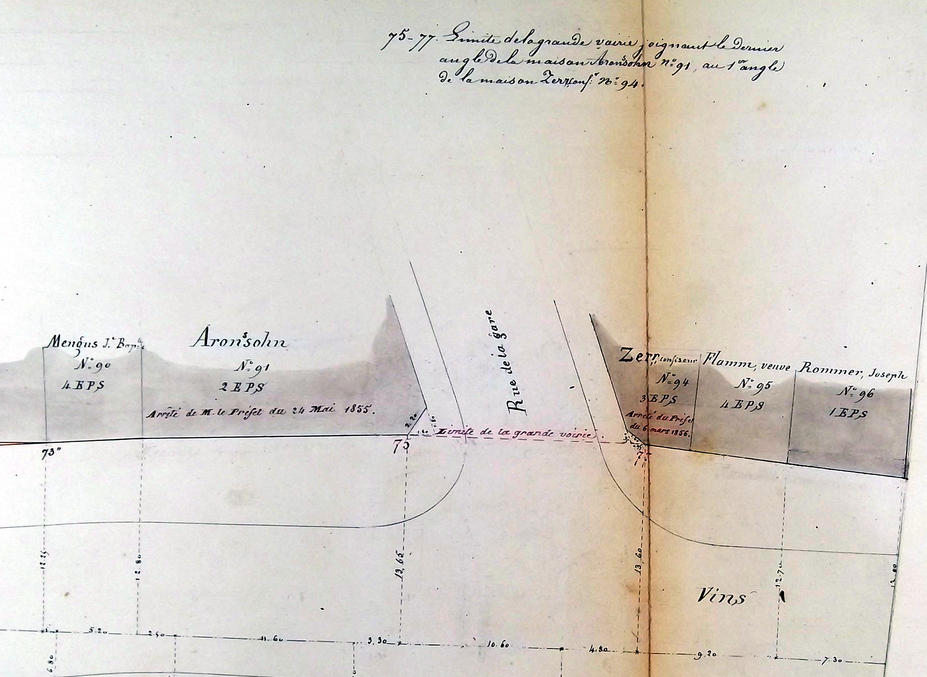 75-77. Limite de la grande voirie joignant le dernier
angle de la maison Aronsohn N.° 91, au 1.er angle
de la maison Zerr, conf.r N.° 94.
Rue de la gare
Mengus J.n Bapt.te
N.° 90
4 EPS
Aronsohn
N.° 91
2 EPS
Arrêté de M. le Préfet du 24 Mai 1855.
Zerr, confiseur
N.° 94
3 EPS
Arrêté du Préfet
du 6 mars 1856.
Flamm, veuve
N.° 95
4 EPS
Rommer, Joseph
N.° 96
1 EPS
Limite de la grande voirie
73"
75
77
12.80
13.65
13.60
12.70
Vins
5.20
2.50
11.60
3.30
10.60
4.80
9.20
7.30
6.80